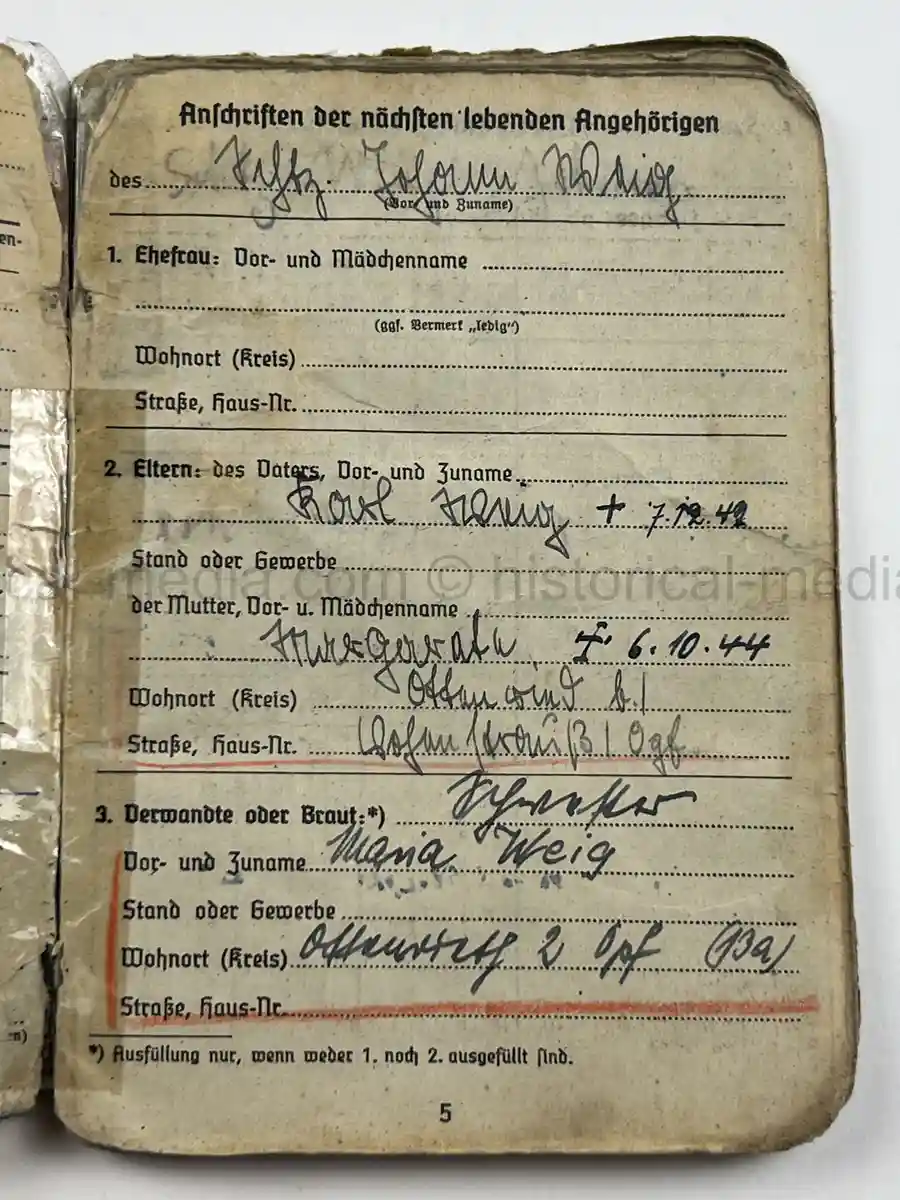 Anschriften der nächsten lebenden Angehörigen
des Schtz. Johann Weig
(Vor- und Zuname)
1. Ehefrau: Vor- und Mädchenname
(ggf. Vermerk „ledig“)
Wohnort (Kreis)
Straße, Haus-Nr.
2. Eltern: des Vaters, Vor- und Zuname
Karl Weig + 7.12.42
Stand oder Gewerbe
der Mutter, Vor- u. Mädchenname
Margareta + 6.10.44
Wohnort (Kreis) b./
Straße, Haus-Nr. Vohenstrauß / Opf
3. Verwandte oder Braut:*) Schwester
Vor- und Zuname Maria Weig
Stand oder Gewerbe
Wohnort (Kreis) Ottenrieth 2 Opf (Ba)
Straße, Haus-Nr.
*) Ausfüllung nur, wenn weder 1. noch 2. ausgefüllt sind.
5
en-
n)
-media.com © historical-media